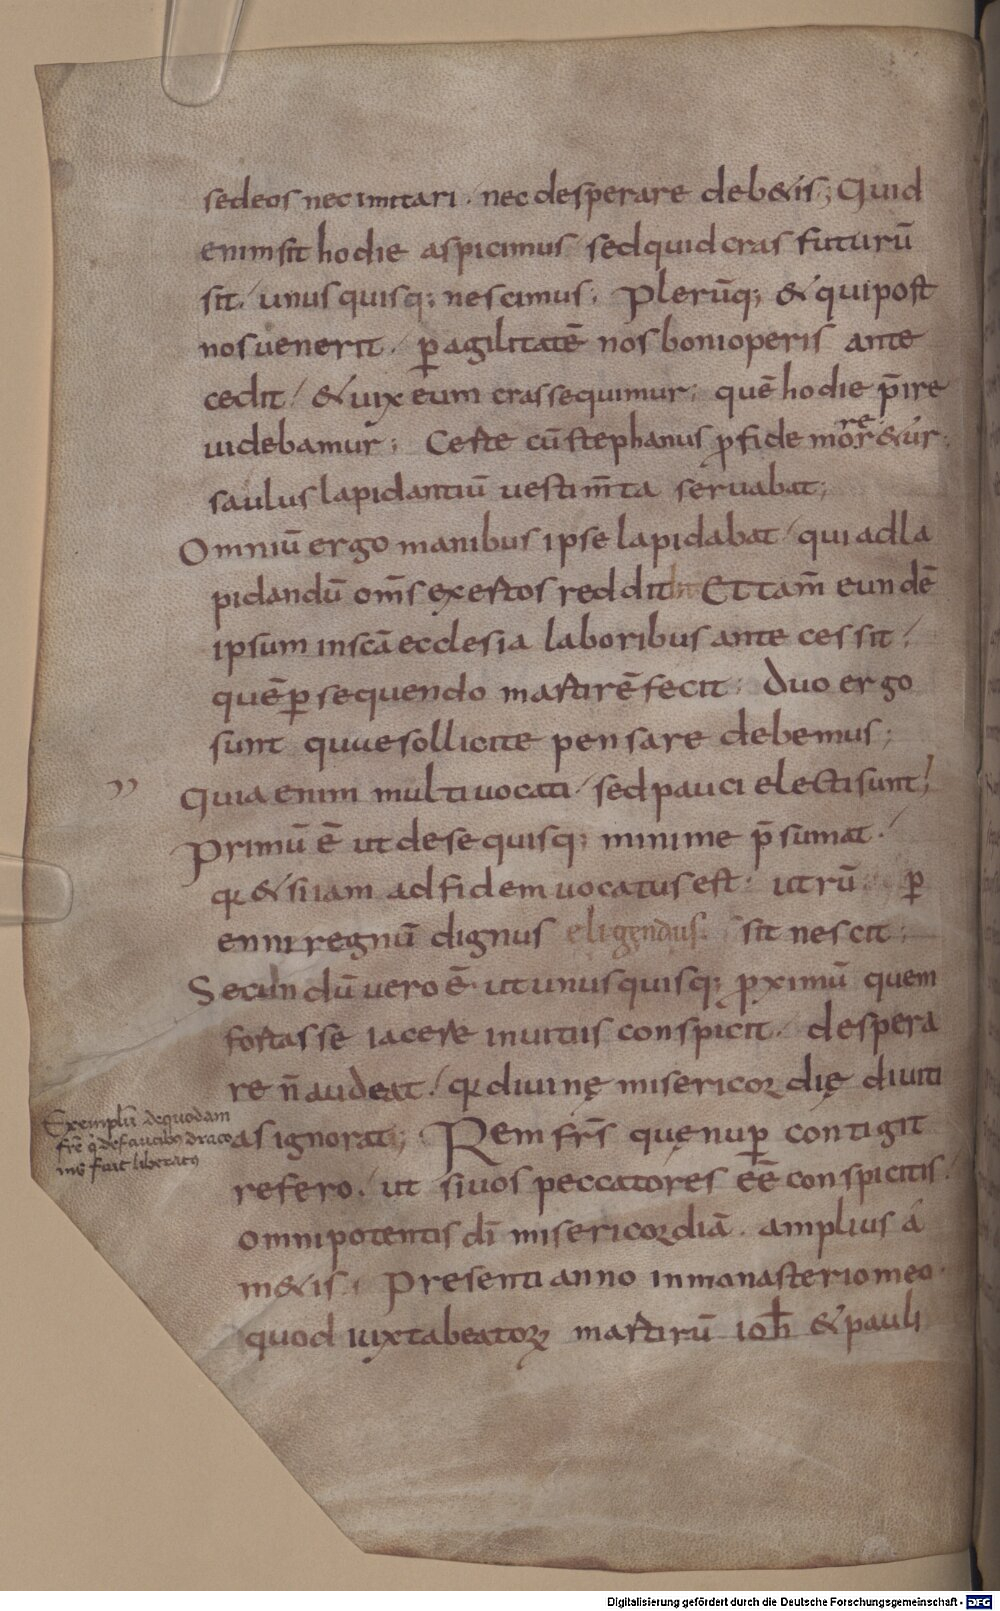 sed eos nec imitari · nec desperare deb&is; Quid
enim sit hodie aspicimus / sed quid cras futurū
sit / unus quisq; nescimus; Plerūq; & qui post
nos venerit / ꝑ agilitatē nos boni operis ante
cedit / & vix eum cras sequimur; quē hodie p̄ire
videbamur; Certe cū stephanus ꝓ fide morer&ur
saulus lapidantiū vestim̄ta servabat;
Omniū ergo manibus ipse lapidabat / qui ad la
pidandū om̄s exertos reddit Et tam̄ eundē
ipsum in scā ecclesia laboribus ante cessit /
quē ꝑsequendo martirē fecit; Duo ergo
sunt quae sollicite pensare debemus;
Quia enim multi vocati / sed pauci electi sunt /
Primū ē ut de se quisq; minime p̄sumat /
qr & si iam ad fidem vocatus est · utrū ꝑ
enni regnū dignus eligendus sit nescit;
Secundū vero ē · ut unus quisq; ꝓximū quem
fortasse iacere in vitiis conspicit / despera
re n̄ audeat / qr divinę misericordię diviti
as ignorat; Rem frs̄ quę nuꝑ contigit
refero / ut si vos peccatores ēē conspicitis /
omnipotentis dī misericordiā · amplius a
m&is; Presenti anno in monasterio meo ·
quod iuxta beatoꝝ martirū ioh̄ & pauli
Exemplū de quodam
frē q̇ de faucibꝰ draco
nis fuit liberatꝰ
Digitalisierung gefördert durch die Deutsche Forschungsgemeinschaft - DFG